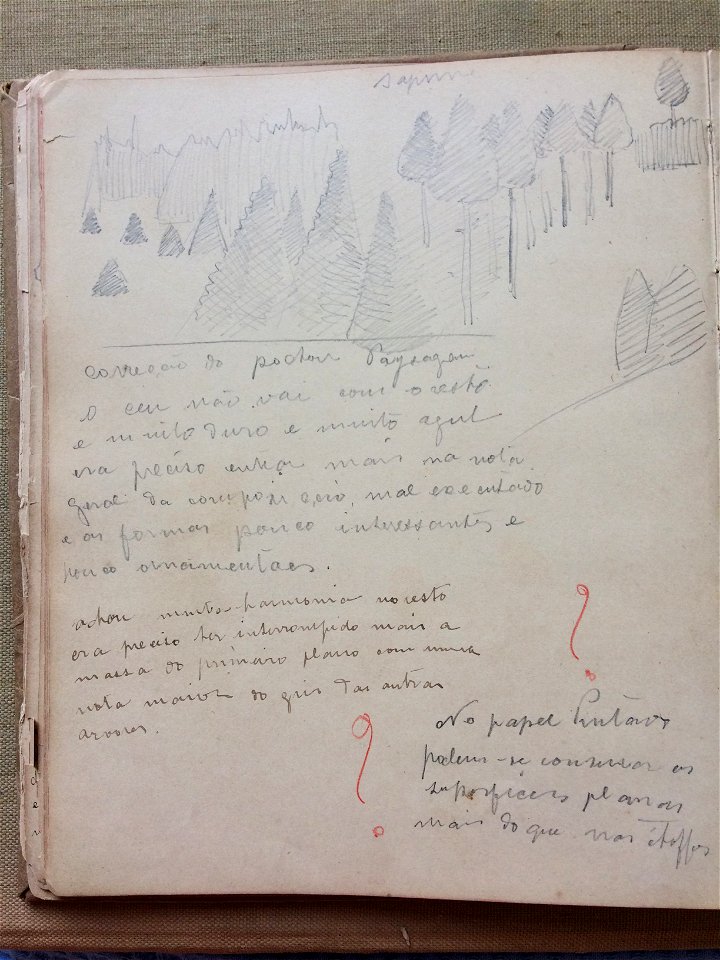 correcção do pochoir Paysagem
O ceu não vai com o resto
e muito duro e muito azul
era preciso entrar mais na nota
geral da composição, mal executado
e as formas pouco interessantes e
pouco ornamentaes.
achou muita harmonia no resto
era preciso ter interrompido mais a
massa do primeiro plano com uma
nota maior do gris das outras
arvores.
?
No papel
podem-se conservar as
superficies planas
mais do que nas étoffes
?